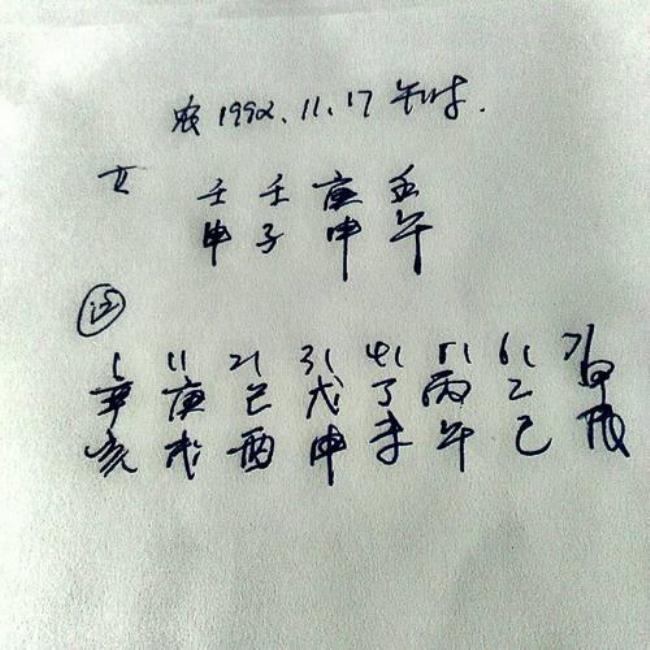 农 1992. 11. 17 午时.
女 壬 壬 庚 壬
申 子 申 午
运
1 11 21 31 41 51 61 71
辛 庚 己 戊 丁 丙 乙 甲
亥 戌 酉 申 未 午 巳 辰